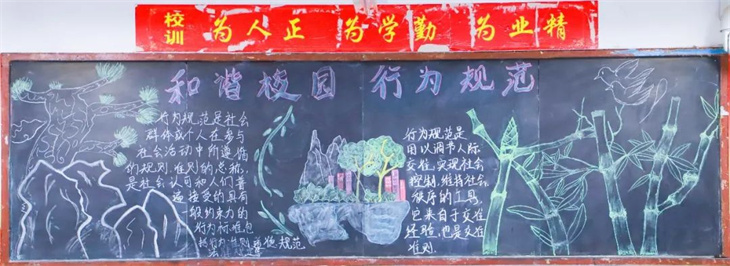 校训
为人正 为学勤 为业精
和谐校园 行为规范
行为规范是社会
群体或个人在参与
社会活动中所遵循
的规则、准则的总称,
是社会认可和人们普
遍接受的具有
一般约束力的
行为标准。包
括行为准则、道德规范、
行为规范是
用以调节人际
交往,实现社会
控制,维持社会
秩序的工具,
它来自于交往
经验,也是交往
准则.